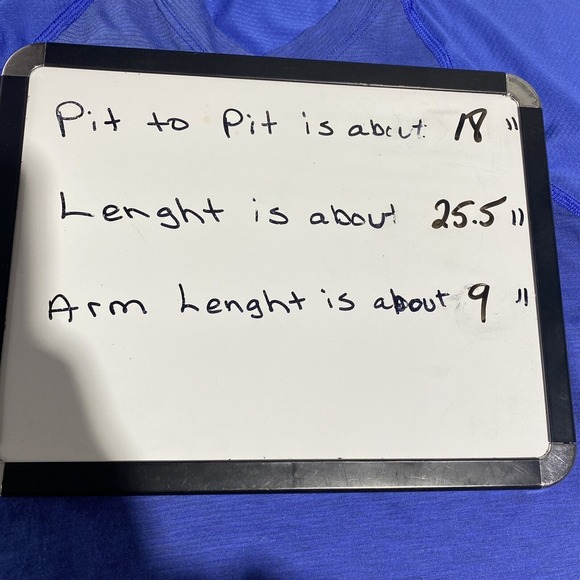 Pit to Pit is about 18"
Lenght is about 25.5"
Arm Lenght is about 9"